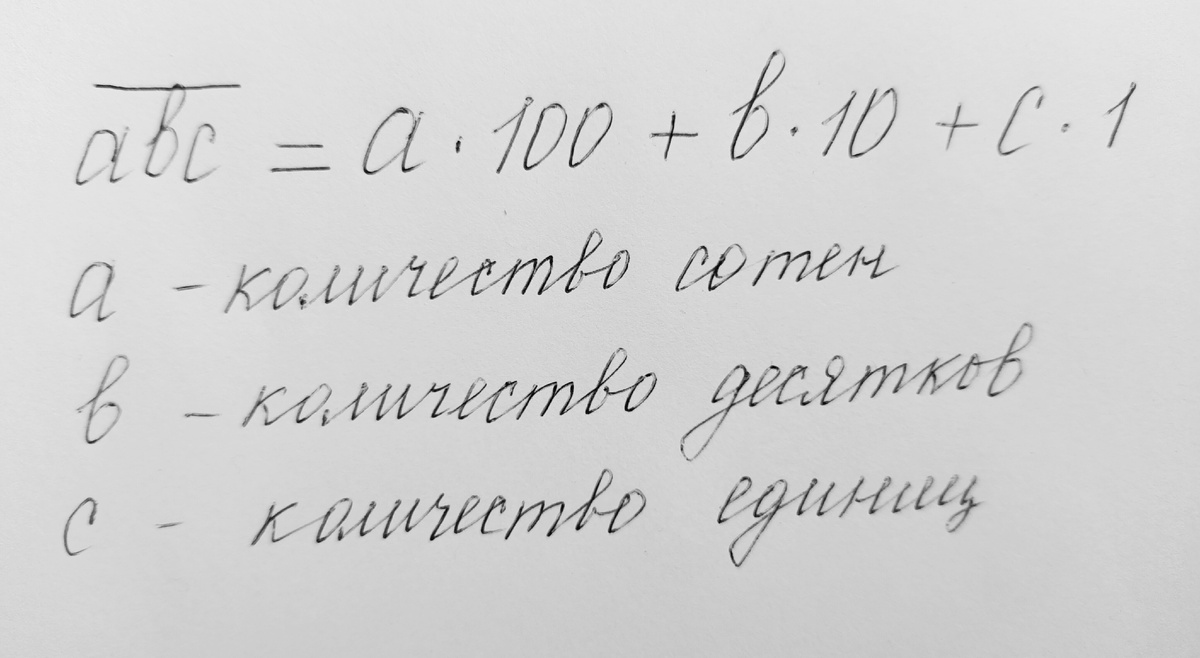 abc = a · 100 + b · 10 + c · 1
a - количество сотен
b - количество десятков
c - количество единиц